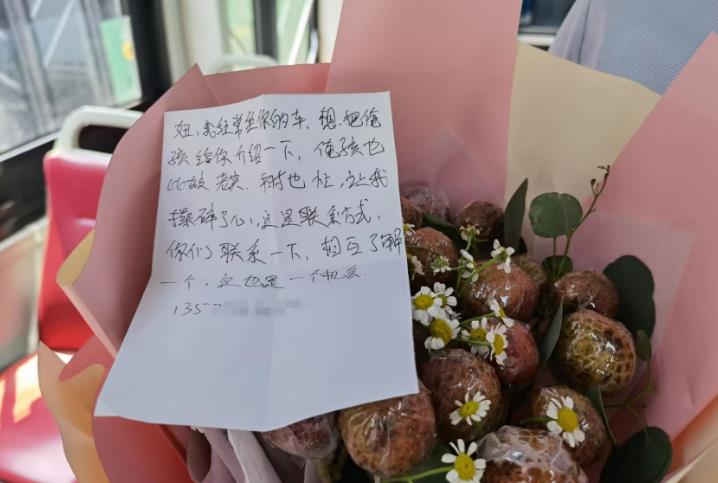 妞，我经常坐你的车，想把俺
孩给你介绍一下，俺孩也
比较老实，平时也忙，让我
操碎了心，这是联系方式，
你们联系一下，相互了解
一个，这也是一个机会.
135